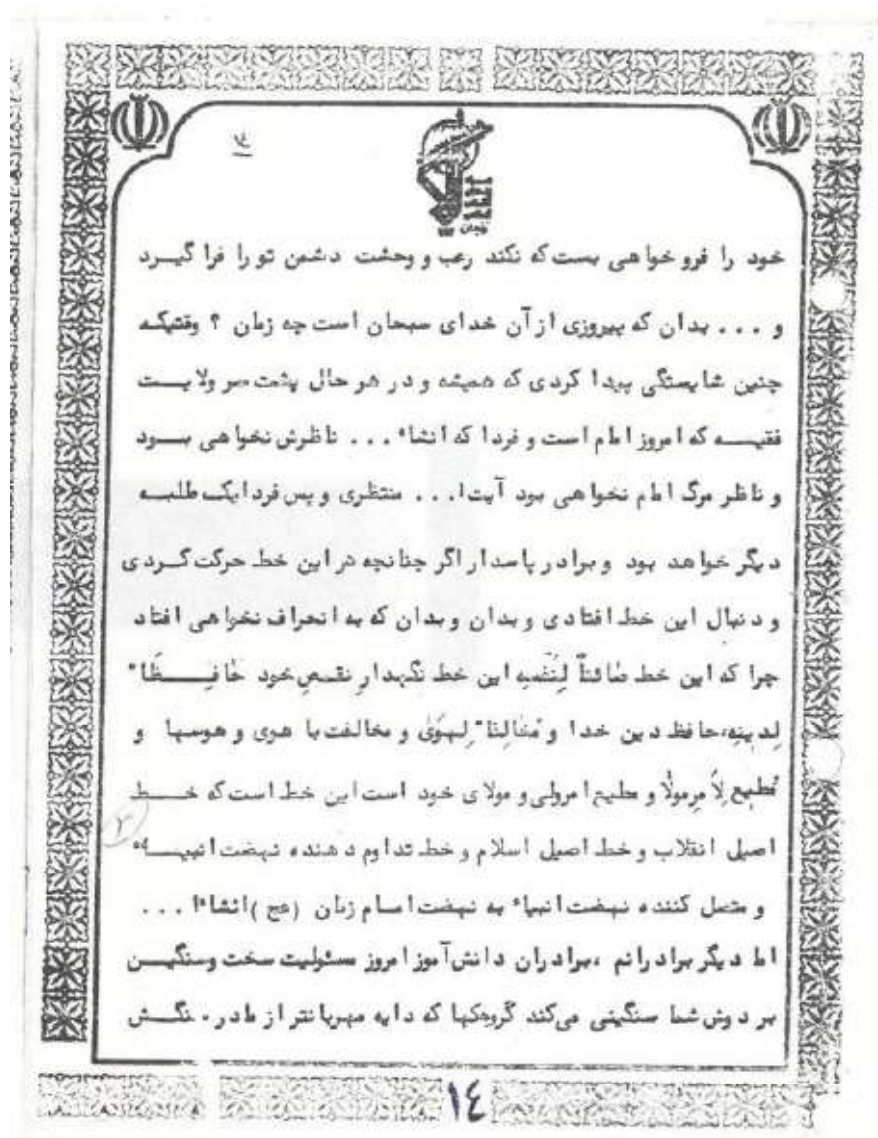 ۴
زنجان
خود را فرو خواهی بست که نکند رعب و وحشت دشمن تو را فرا گیرد
و ... بدان که پیروزی از آن خدای سبحان است چه زمان ؟ وقتیکه
چنین شایستگی پیدا کردی که همیشه و در هر حال پشت سر ولایت
فقیه که امروز امام است و فردا که انشاء ... ناظرش نخواهی بود
و ناظر مرگ امام نخواهی بود آیت‌ا... منتظری و پس فردا یک طلبه
دیگر خواهد بود و برادر پاسدار اگر چنانچه در این خط حرکت کردی
و دنبال این خط افتادی و بدان و بدان که به انحراف نخواهی افتاد
چرا که این خط صائناً لِنَفسِه این خط نگهدار نفس خود حافِظاً
لِدینِه، حافظ دین خدا و مُخالِفاً لِهَویٰ و مخالفت با هوی و هوسها و
مُطیع لِاَمرِمولاٰ و مطیع امرولی و مولای خود است این خط است که خط
اصیل انقلاب و خط اصیل اسلام و خط تداوم دهنده نهضت انبیاء
۲
و متصل کننده نهضت انبیاء به نهضت امام زمان (عج) انشاءا ...
اما دیگر برادرانم ،برادران دانش‌آموز امروز مسئولیت سخت و سنگین
بر دوش شما سنگینی می‌کند گروهکها که دایه مهربانتر از مادر ،ننگش
۱٤